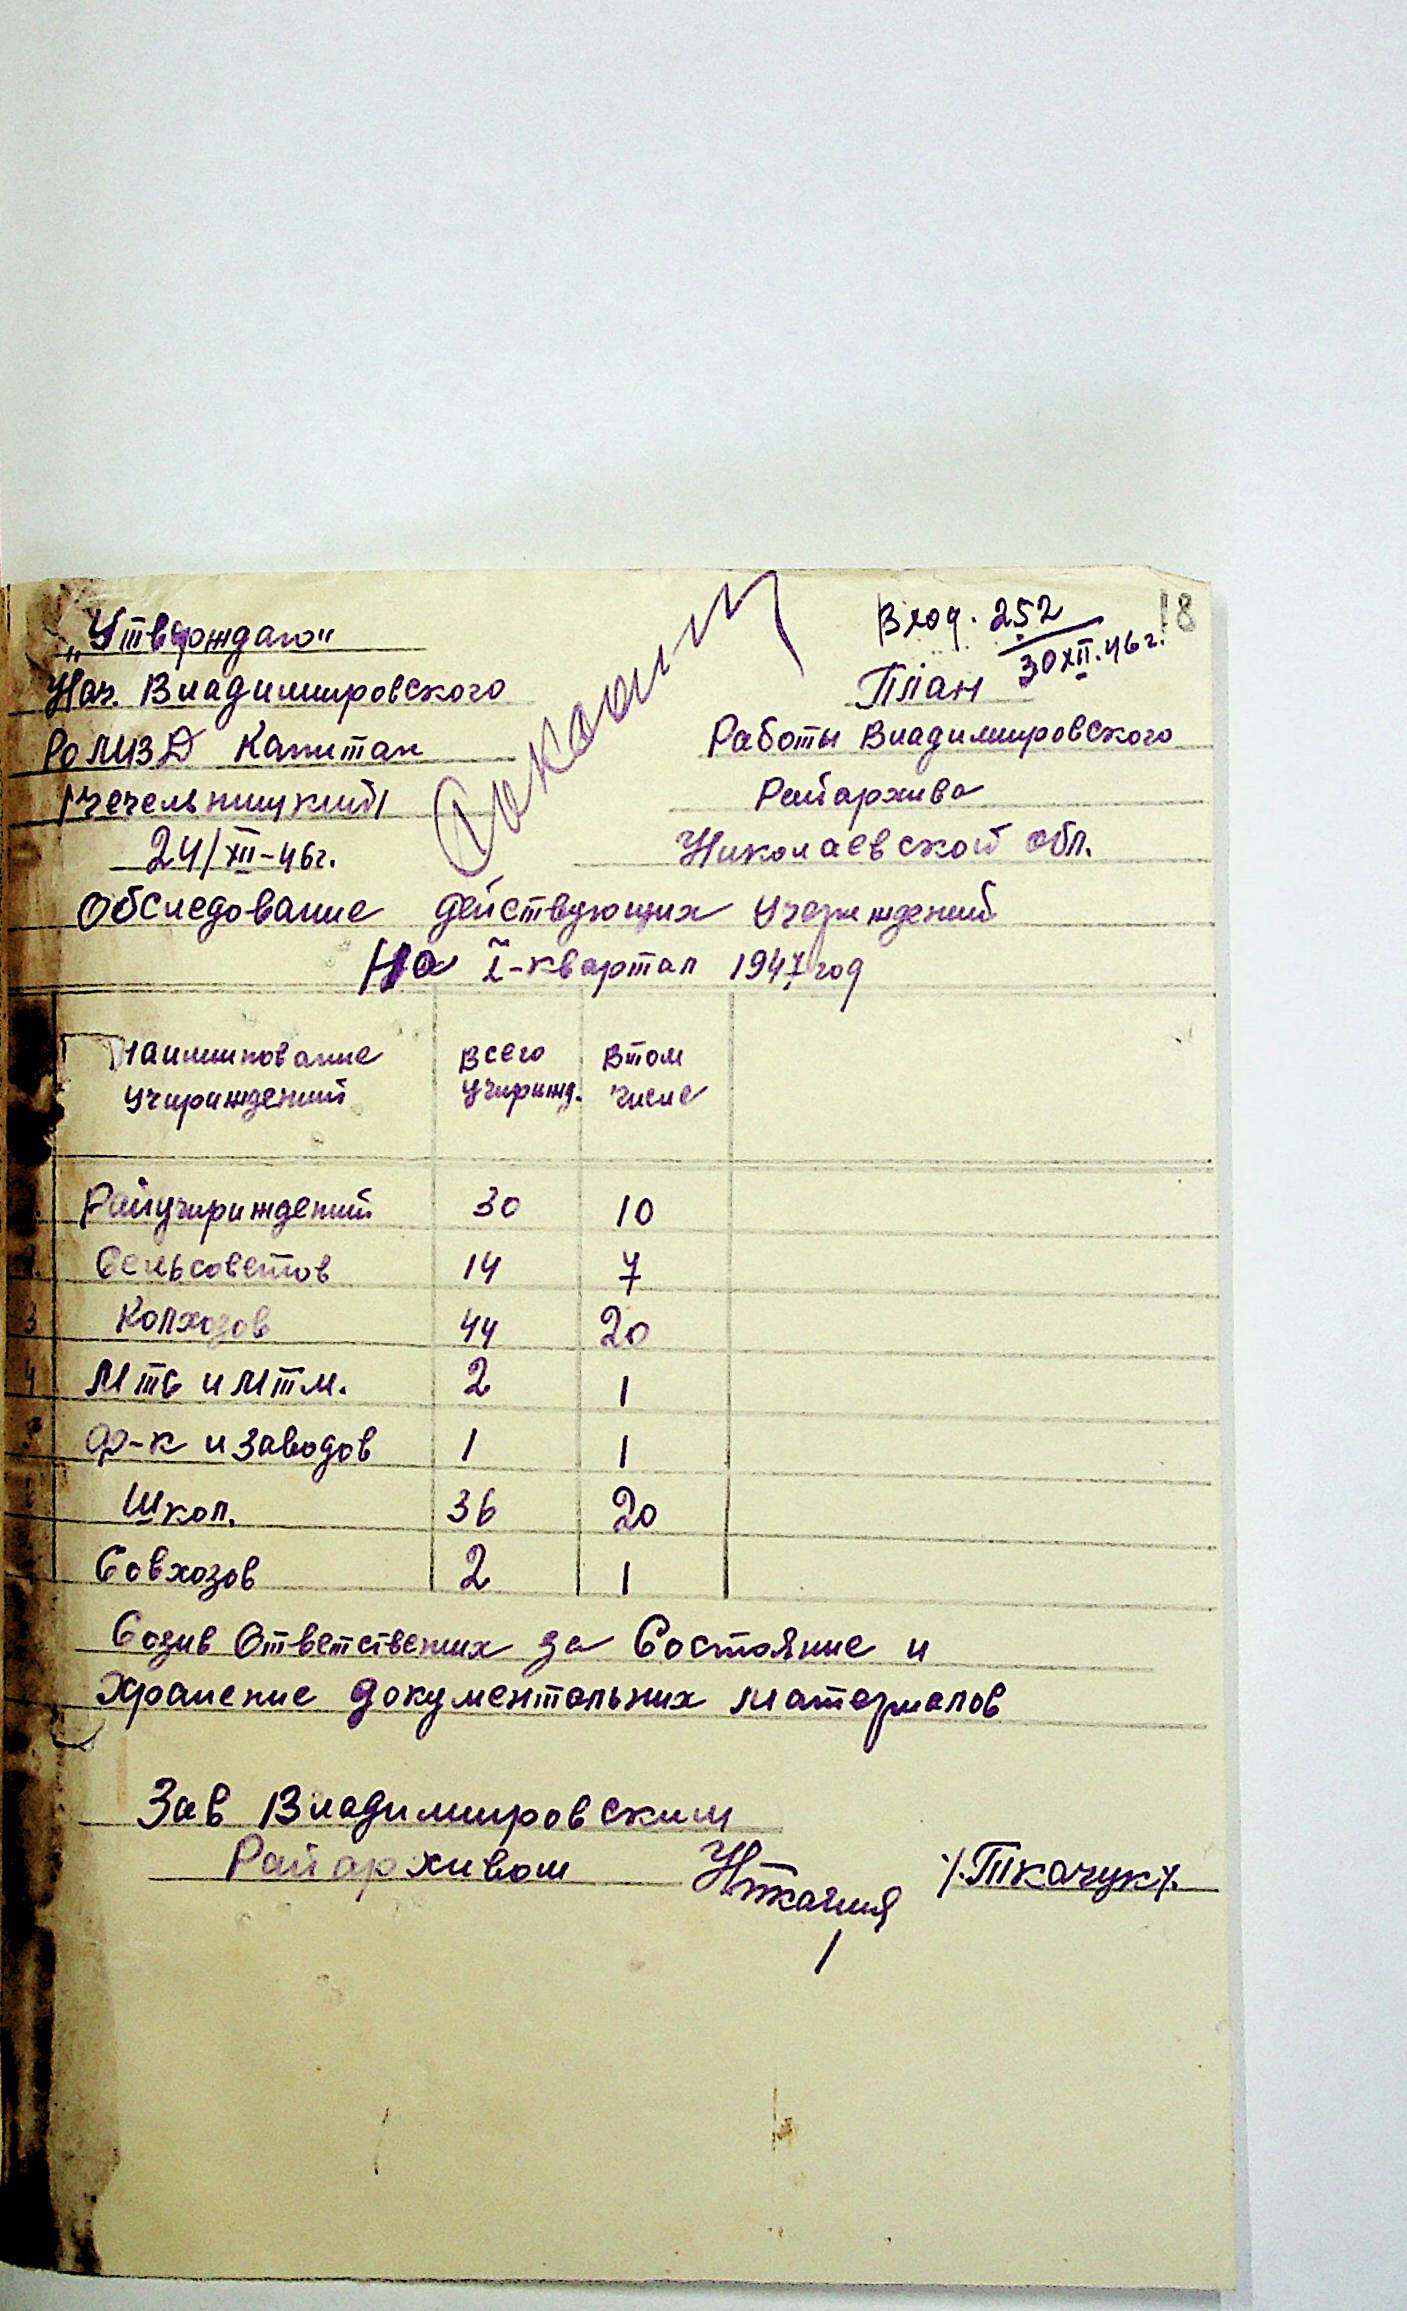 18
Вход. 252
30 XII. 46 г.
„Утверждаю“
Нач. Владимировского
РО МВД Капитан
/Чечельницкий/
24/XII-46г.
План
Работы Владимировского
Райархива
Николаевской обл.
Обследование действующих Учереждений
На I-квартал 1947 год
Наиминование учириждений
Всего учирижд.
Втом числе
Райучириждений 30 10
Сельсоветов 14 7
3 Колхозов 44 20
4 Мтс и Мтм. 2 1
Ф-к и заводов 1 1
Школ. 36 20
Совхозов 2 1
Созив Ответствених за Состояние и
Хранение документальних материалов
Зав Владимировским
Райархивом /.Ткачук/.